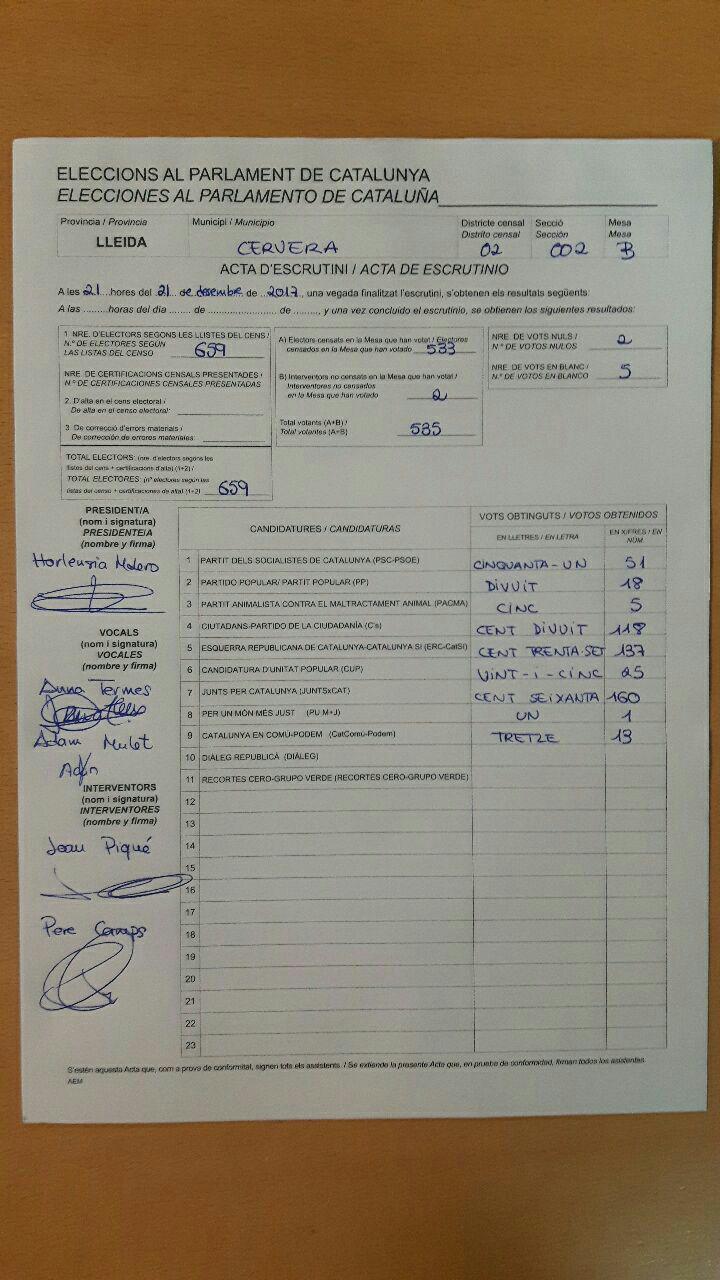 ELECCIONS AL PARLAMENT DE CATALUNYA
ELECCIONES AL PARLAMENTO DE CATALUÑA
Província / Provincia Municipi / Municipio Districte censal Secció Mesa
Distrito censal Sección Mesa
LLEIDA CERVERA 02 002 B
ACTA D'ESCRUTINI / ACTA DE ESCRUTINIO
A les 21 hores del 21 de desembre de 2017, una vegada finalitzat l'escrutini, s'obtenen els resultats següents:
A las ........ horas del día ....... de ........................ de ........, y una vez concluido el escrutinio, se obtienen los siguientes resultados:
1. NRE. D'ELECTORS SEGONS LES LLISTES DEL CENS /
N.º DE ELECTORES SEGÚN
LAS LISTAS DEL CENSO 659
NRE. DE CERTIFICACIONS CENSALS PRESENTADES /
N.º DE CERTIFICACIONES CENSALES PRESENTADAS
2. D'alta en el cens electoral /
De alta en el censo electoral:
3. De correcció d'errors materials /
De corrección de errores materiales:
TOTAL ELECTORS: (nre. d'electors segons les
llistes del cens + certificacions d'alta) (1+2) /
TOTAL ELECTORES: (nº electores según las
listas del censo + certificaciones de alta) (1+2) 659
A) Electors censats en la Mesa que han votat / Electores
censados en la Mesa que han votado 533
B) Interventors no censats en la Mesa que han votat /
Interventores no censados
en la Mesa que han votado 2
Total votants (A+B) /
Total votantes (A+B) 535
NRE. DE VOTS NULS /
N.º DE VOTOS NULOS 2
NRE. DE VOTS EN BLANC /
N.º DE VOTOS EN BLANCO 5
PRESIDENT/A
(nom i signatura)
PRESIDENTE/A
(nombre y firma)
VOCALS
(nom i signatura)
VOCALES
(nombre y firma)
Anna Termes
Adam Mulet
INTERVENTORS
(nom i signatura)
INTERVENTORES
(nombre y firma)
Joan Piqué
Pere
CANDIDATURES / CANDIDATURAS VOTS OBTINGUTS / VOTOS OBTENIDOS
EN LLETRES / EN LETRA EN XIFRES / EN NÚM.
1 PARTIT DELS SOCIALISTES DE CATALUNYA (PSC-PSOE) CINQUANTA-UN 51
2 PARTIDO POPULAR/ PARTIT POPULAR (PP) DIVUIT 18
3 PARTIT ANIMALISTA CONTRA EL MALTRACTAMENT ANIMAL (PACMA) CINC 5
4 CIUTADANS-PARTIDO DE LA CIUDADANÍA (C's) CENT DIVUIT 118
5 ESQUERRA REPUBLICANA DE CATALUNYA-CATALUNYA SÍ (ERC-CatSí) CENT TRENTA-SET 137
6 CANDIDATURA D'UNITAT POPULAR (CUP) VINT-I-CINC 25
7 JUNTS PER CATALUNYA (JUNTSxCAT) CENT SEIXANTA 160
8 PER UN MÓN MÉS JUST (PU M+J) UN 1
9 CATALUNYA EN COMÚ-PODEM (CatComú-Podem) TRETZE 13
10 DIÀLEG REPUBLICÀ (DIÀLEG)
11 RECORTES CERO-GRUPO VERDE (RECORTES CERO-GRUPO VERDE)
12
13
14
15
16
17
18
19
20
21
22
23
S'estén aquesta Acta que, com a prova de conformitat, signen tots els assistents. / Se extiende la presente Acta que, en prueba de conformidad, firman todos los asistentes.
AEM